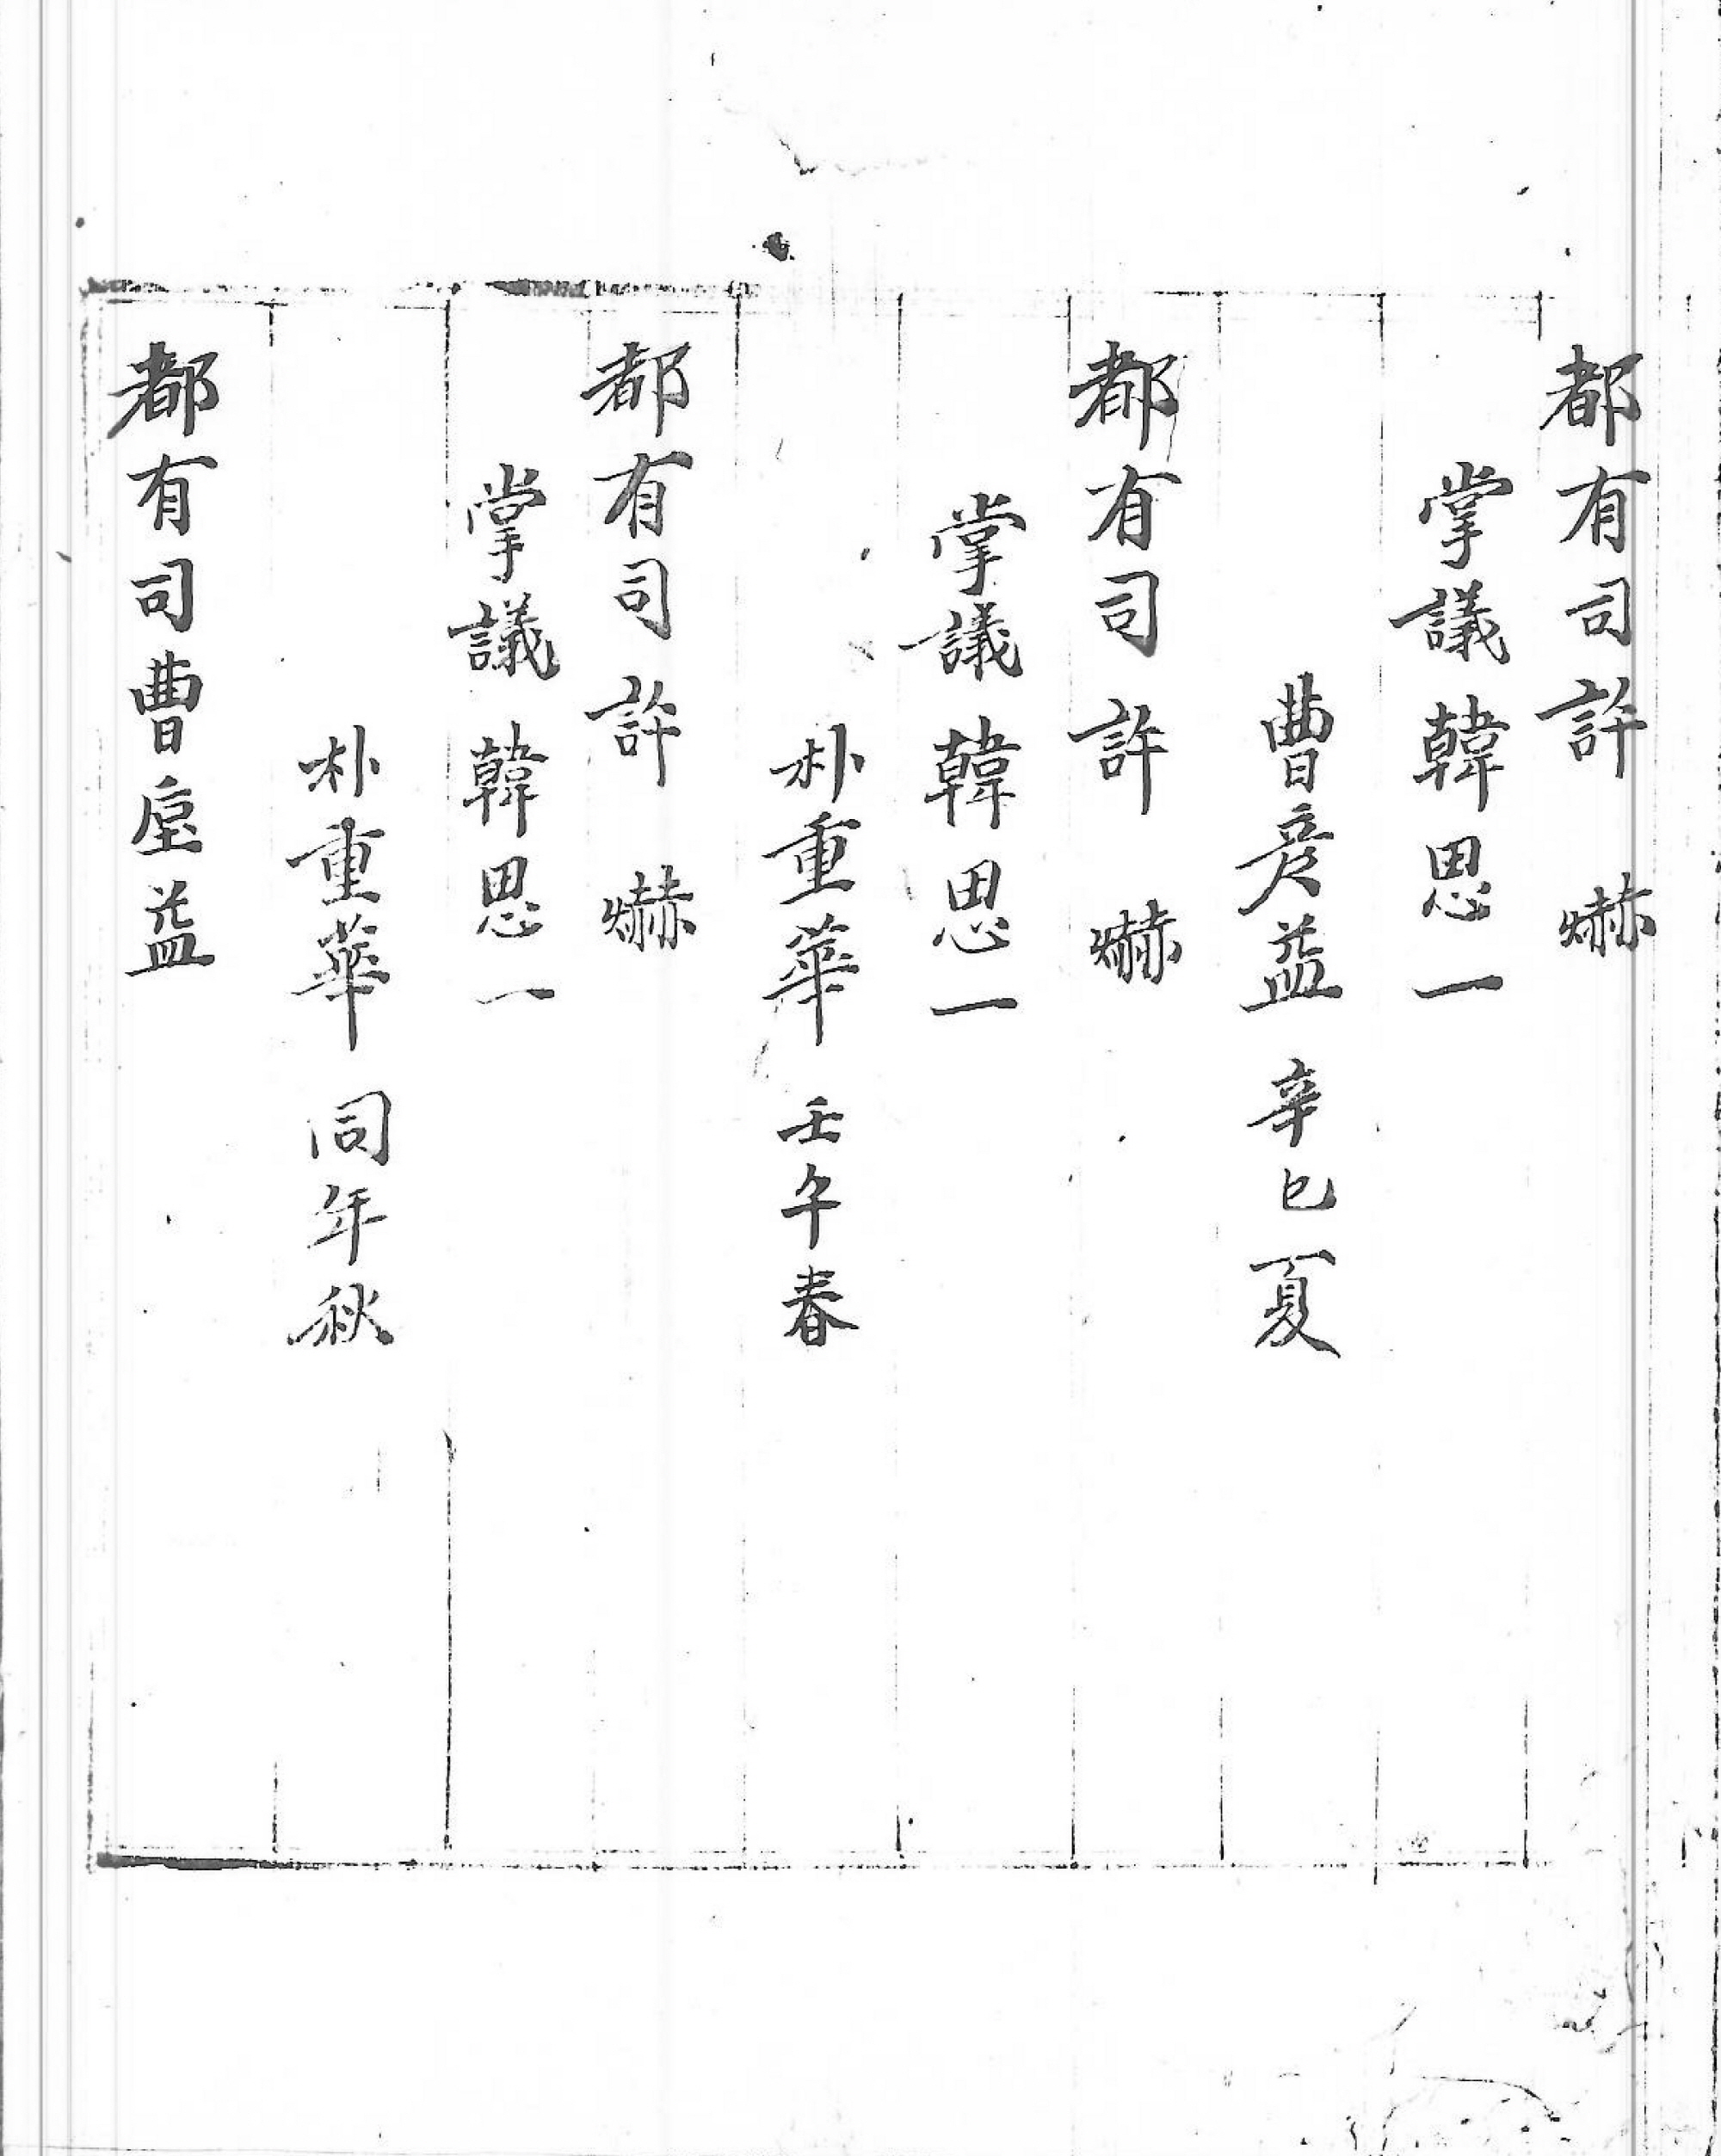 都有司許 爀
掌議韓思一
曺彦益 辛巳夏
都有司許 爀
掌議韓思一
朴重華 壬午春
都有司許 爀
掌議韓思一
朴重華 同年秋
都有司曺益